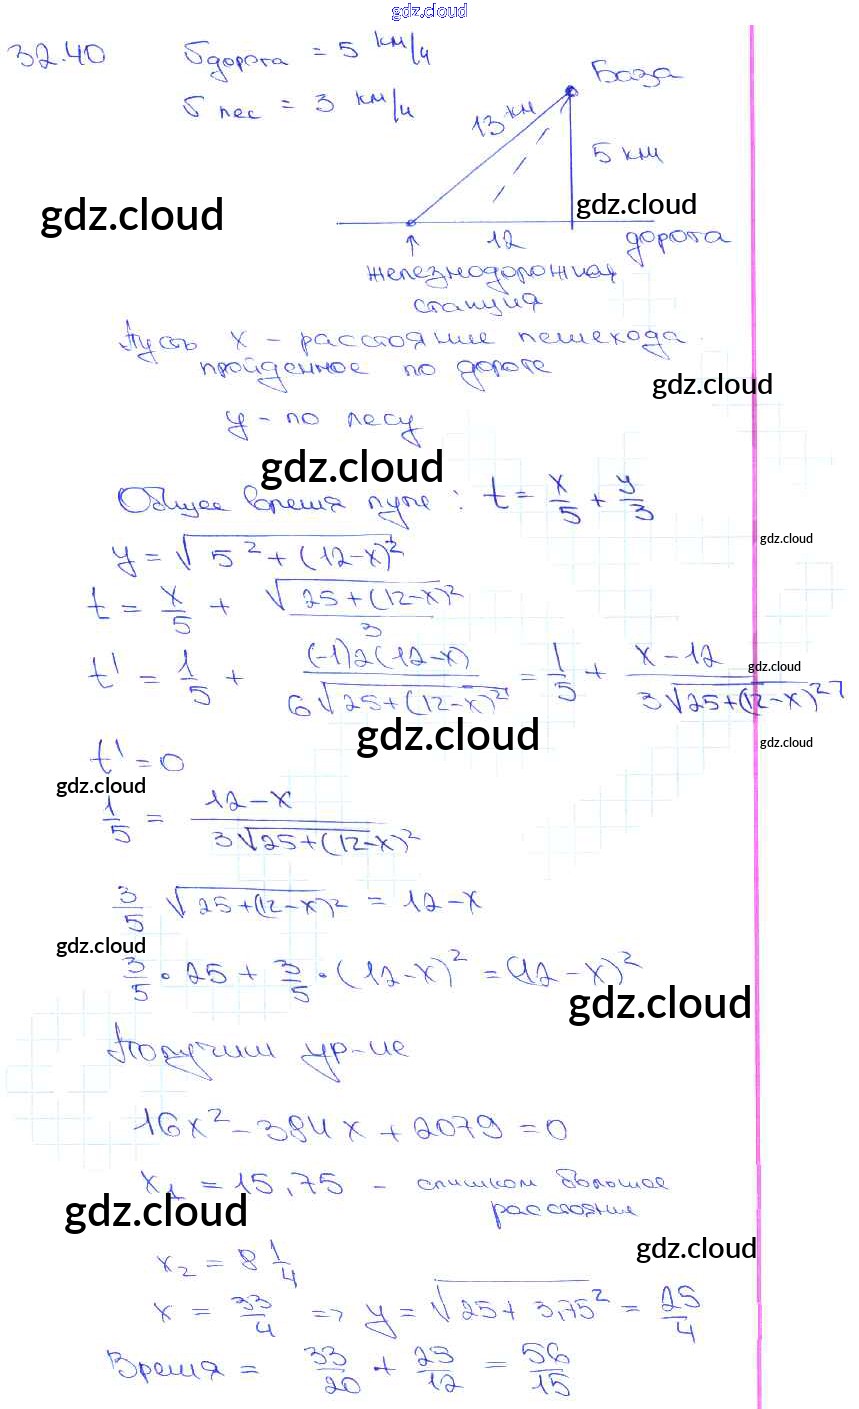 gdz.cloud
32.40 υ дорога = 5 км/ч
υ лес = 3 км/ч
База
13 км
5 км
gdz.cloud
gdz.cloud
12
дорога
↑
железнодорожная
станция
Пусть x - расстояние пешехода
пройденное по дороге
gdz.cloud
y - по лесу
gdz.cloud
Общее время пути: t = x/5 + y/3
gdz.cloud
y = √(5² + (12-x)²)
t = x/5 + √(25+(12-x)²)/3
t' = 1/5 + (-1)2(12-x)/(6√(25+(12-x)²)) = 1/5 + (x-12)/(3√(25+(12-x)²))
gdz.cloud
gdz.cloud
gdz.cloud
t' = 0
gdz.cloud
1/5 = (12-x)/(3√(25+(12-x)²))
3/5 √(25+(12-x)²) = 12-x
gdz.cloud
3/5 · 25 + 3/5 · (12-x)² = (12-x)²
gdz.cloud
Получим ур-ие
16x² - 384x + 2079 = 0
x₁ = 15,75 - слишком большое
расстояние
gdz.cloud
gdz.cloud
x₂ = 8 1/4
x = 33/4 => y = √(25 + 3,75²) = 25/4
Время = 33/20 + 25/12 = 56/15